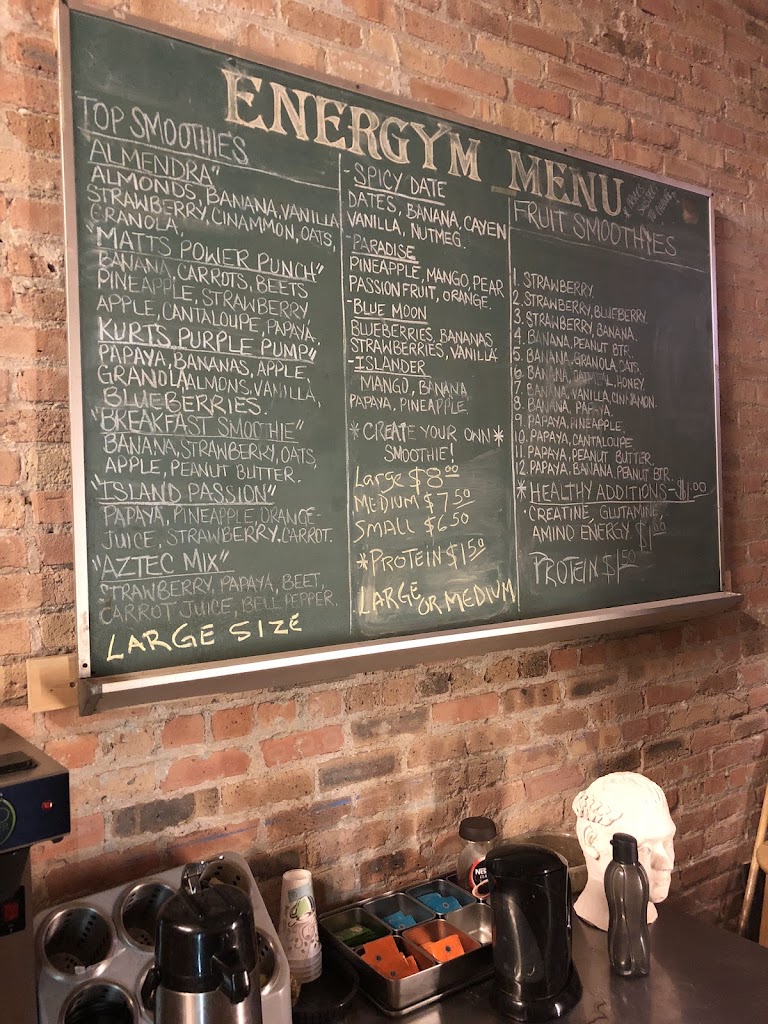 ENERGYM MENU
TOP SMOOTHIES
"ALMENDRA"
ALMONDS, BANANA, VANILLA
STRAWBERRY, CINAMMON, OATS,
GRANOLA,
"MATTS POWER PUNCH"
BANANA, CARROTS, BEETS
PINEAPPLE, STRAWBERRY
APPLE, CANTALOUPE, PAPAYA.
KURTS PURPLE PUMP"
PAPAYA, BANANAS, APPLE,
GRANOLA, ALMONS, VANILLA,
BLUEBERRIES.
"BREAKFAST SMOOTHIE"
BANANA, STRAWBERRY, OATS,
APPLE, PEANUT BUTTER.
"ISLAND PASSION"
PAPAYA, PINEAPPLE, ORANGE-
JUICE, STRAWBERRY, CARROT.
"AZTEC MIX"
STRAWBERRY, PAPAYA, BEET,
CARROT JUICE, BELL PEPPER.
LARGE SIZE
-SPICY DATE
DATES, BANANA, CAYEN
VANILLA, NUTMEG.
-PARADISE
PINEAPPLE, MANGO, PEAR
PASSIONFRUIT, ORANGE.
-BLUE MOON
BLUEBERRIES, BANANAS,
STRAWBERRIES, VANILLA.
-ISLANDER
MANGO, BANANA
PAPAYA, PINEAPPLE.
*CREATE YOUR OWN*
SMOOTHIE!
Large $8.00
MEDIUM $7.50
SMALL $6.50
*PROTEIN $1.50
LARGE OR MEDIUM
FRUIT SMOOTHYES
1. STRAWBERRY.
2. STRAWBERRY, BLUEBERRY.
3. STRAWBERRY, BANANA.
4. BANANA, PEANUT BTR.
5. BANANA, GRANOLA, OATS.
6. BANANA, HONEY.
7. BANANA, VANILLA, CINNAMON.
8. BANANA, PAPAYA.
9. PAPAYA, PINEAPPLE.
10. PAPAYA, CANTALOUPE
11. PAPAYA, PEANUT BUTTER.
12. PAPAYA, BANANA, PEANUT BTR.
*HEALTHY ADDITIONS-$1.00
·CREATINE, GLUTAMINE,
AMINO ENERGY.
PROTEIN $1.50